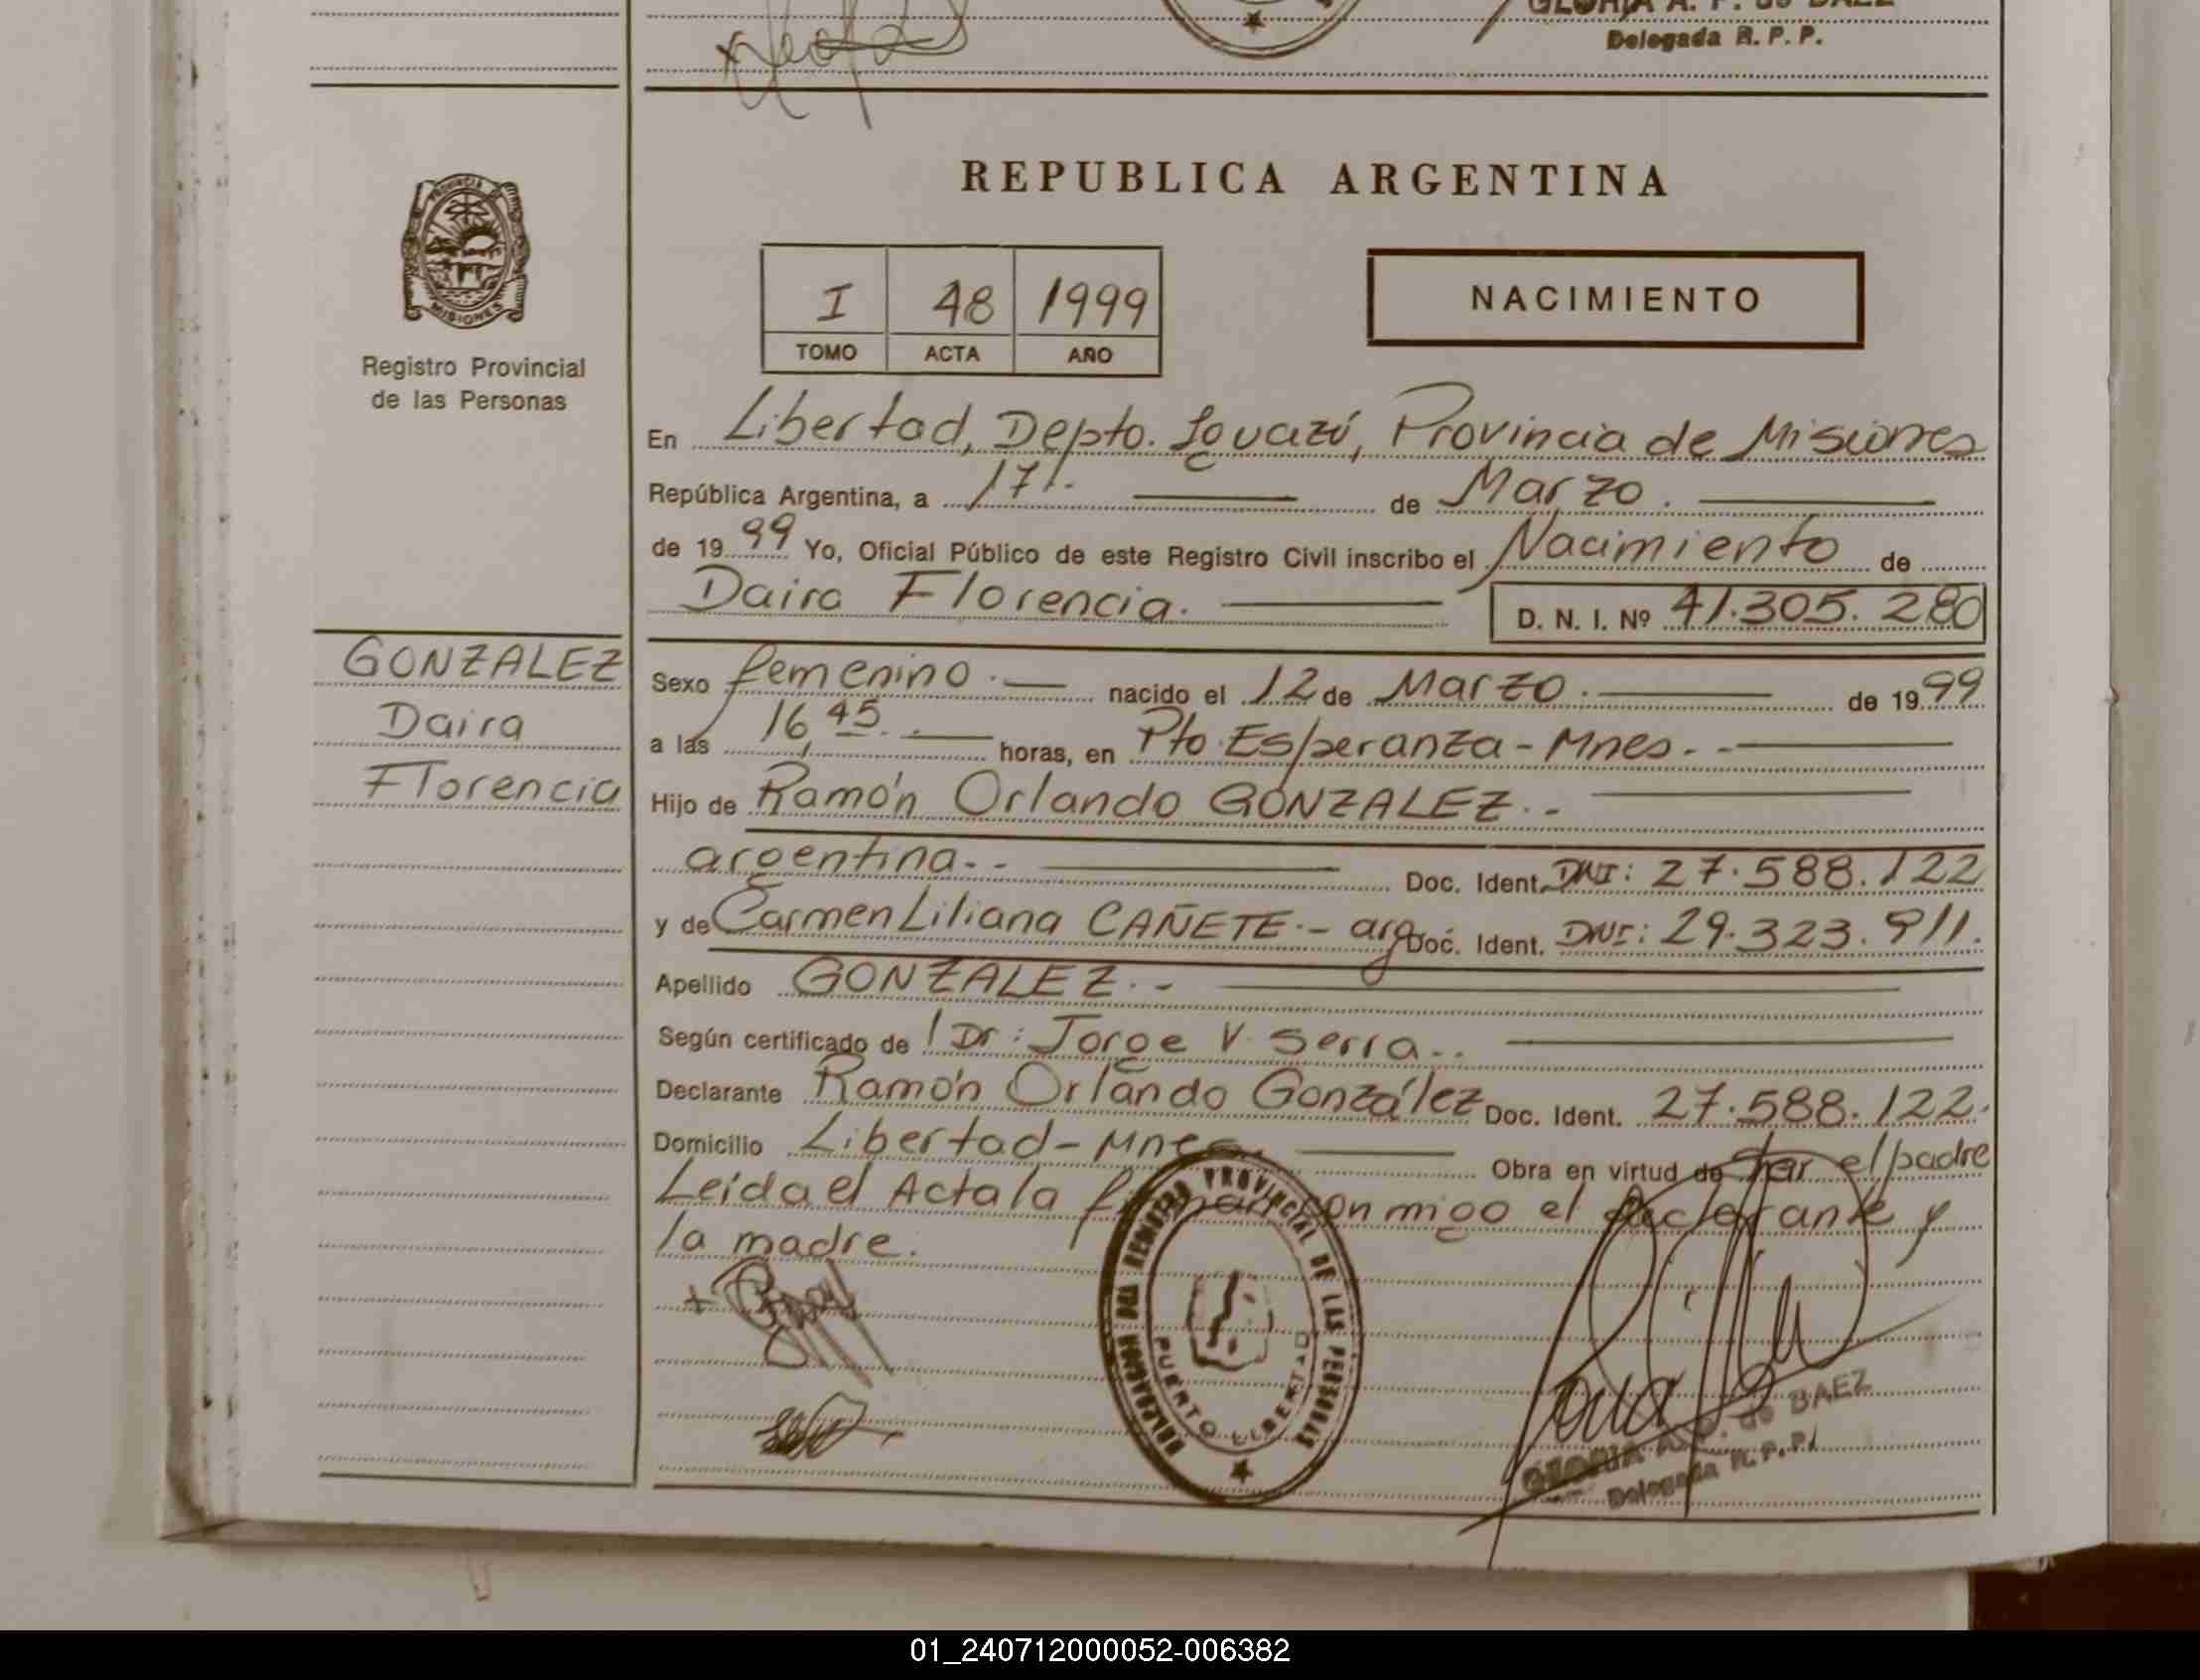 GLORIA A. P. de BAEZ
Delegada R. P. P.
PROVINCIA DE
MISIONES
Registro Provincial
de las Personas
REPUBLICA ARGENTINA
I 48 1999
TOMO ACTA AÑO
NACIMIENTO
En Libertad, Depto. Iguazú, Provincia de Misiones
República Argentina, a 17. de Marzo.
de 1999 Yo, Oficial Público de este Registro Civil inscribo el Nacimiento de
Daira Florencia. D. N. I. Nº 41.305.280
GONZALEZ
Daira
Florencia
Sexo femenino. nacido el 12 de Marzo. de 1999
a las 16,45. horas, en Pto. Esperanza - Mnes. -
Hijo de Ramón Orlando GONZALEZ. -
argentina. - Doc. Ident. DNI: 27.588.122
y de Carmen Liliana CAÑETE. - arg Doc. Ident. DNI: 29.323.911.
Apellido GONZALEZ. -
Según certificado de Dr: Jorge V. Serra..
Declarante Ramón Orlando González Doc. Ident. 27.588.122.
Domicilio Libertad - Mnes. Obra en virtud de ser el padre
Leída el Acta la firman conmigo el declarante y
la madre.
DELEGACION DEL REGISTRO PROVINCIAL DE LAS PERSONAS
PUERTO LIBERTAD
GLORIA A. P. de BAEZ
Delegada R. P. P.
01_240712000052-006382